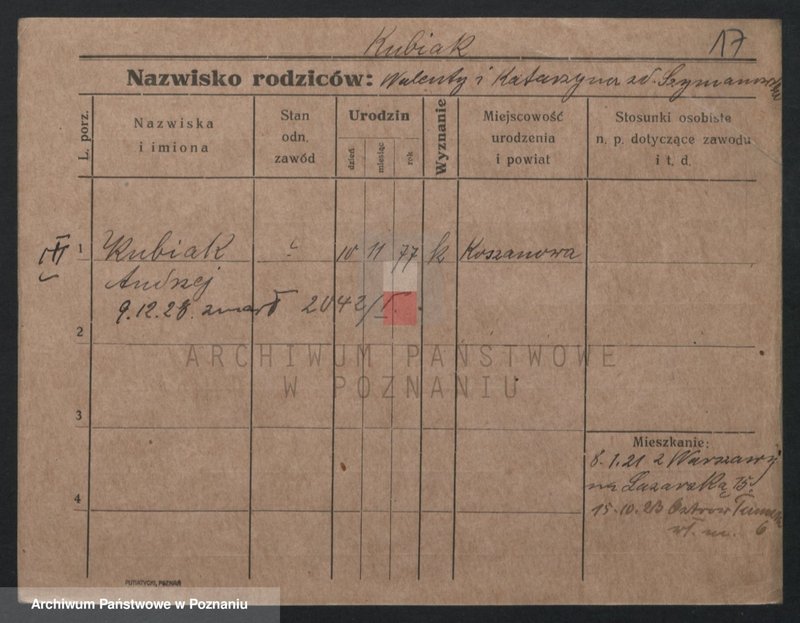 Kubiak 17
Nazwisko rodziców: Walenty i Katarzyna zd. Szymanowska
L. porz.
Nazwiska
i imiona
Stan
odn.
zawód
Urodzin
dzień
miesiąc
rok
Wyznanie
Miejscowość
urodzenia
i powiat
Stosunki osobiste
n. p. dotyczące zawodu
i t. d.
1 Kubiak 10 11 77 k Koszanowa
Andrzej
9.12.28. zmarł 2042/I.
2
ARCHIWUM PAŃSTWOWE
W POZNANIU
3
Mieszkanie:
8.1.21 z Warszawy
na Łazarską 15.
4
15.10.23 Ostrów
6
PUTIATYCKI, POZNAŃ
Archiwum Państwowe w Poznaniu